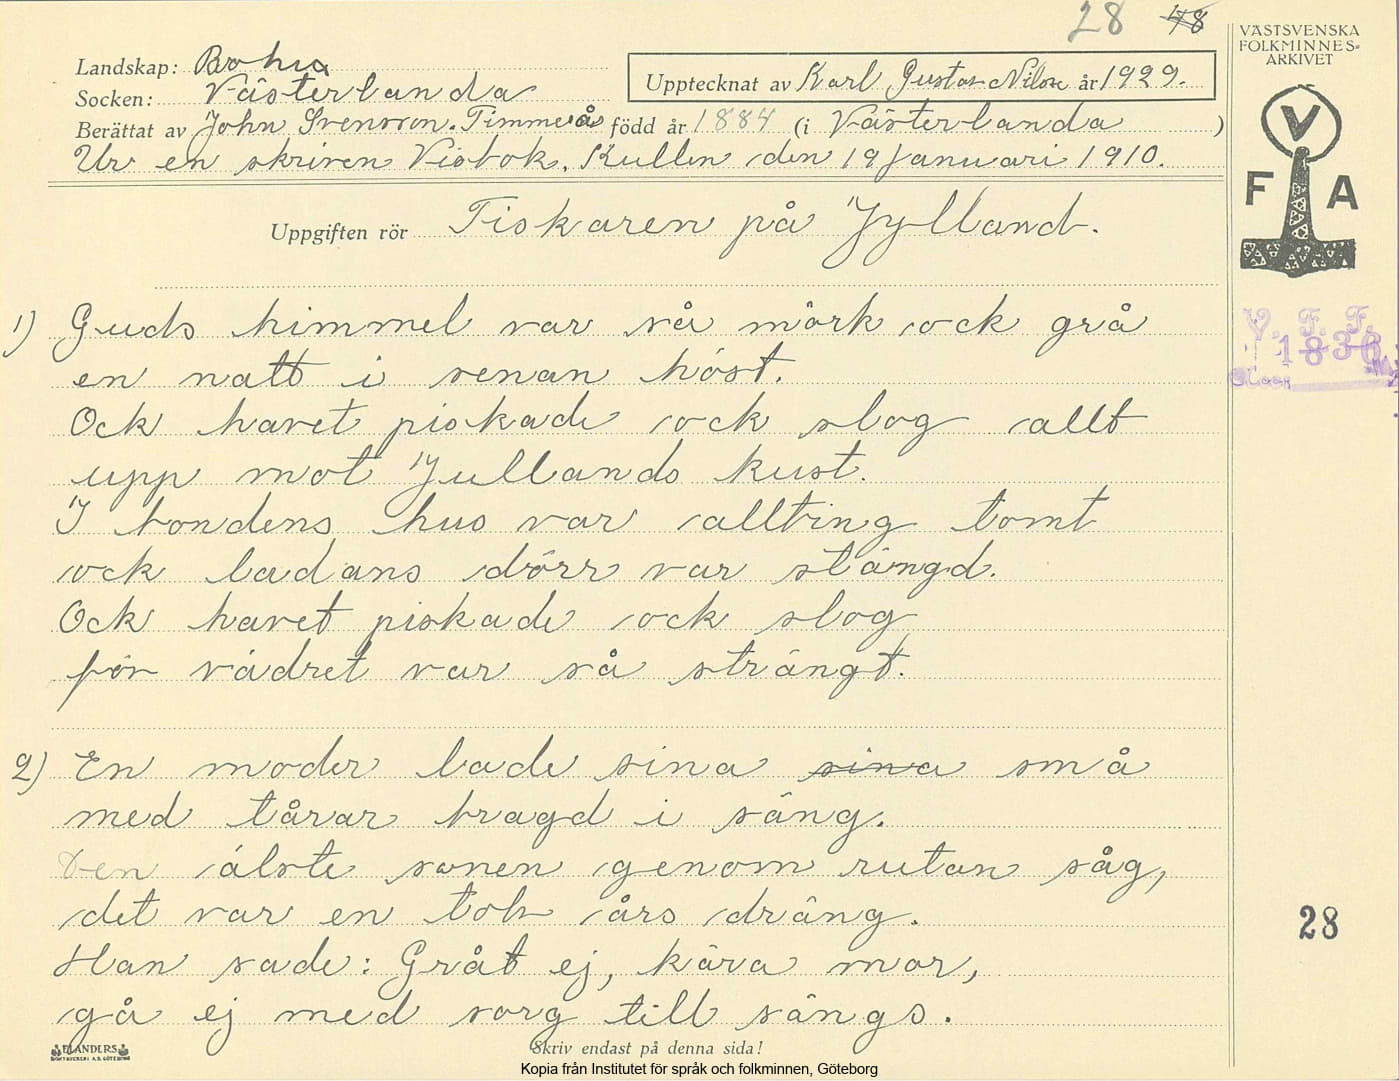 28 48
VÄSTSVENSKA
FOLKMINNES-
ARKIVET
Landskap: Bohus
Upptecknat av Karl Gustav Nilson år 1929.
Socken: Västerlanda
Berättat av John Svensson. Timmerås född år 1884 (i Västerlanda )
Ur en skriven Visbok. Kullen den 19 Januari 1910.
V
F A
Uppgiften rör Fiskaren på Jylland.
1) Guds himmel var så mörk ock grå
en natt i senan höst.
Ock havet piskade ock slog allt
upp mot Jullands kust.
I bondens hus var allting tomt
ock ladans dörr var stängd.
Ock havet piskade ock slog
för vädret var så strängt.
V. F. F.
1836
2) En moder lade sina sina små
med tårar bragd i säng.
Den älste sonen genom rutan såg,
det var en tolv års dräng.
Han sade: Gråt ej, kära mor,
gå ej med sorg till sängs.
28
ELANDERS
BOKTRYCKERI A.B. GÖTEBORG
Skriv endast på denna sida!
Kopia från Institutet för språk och folkminnen, Göteborg